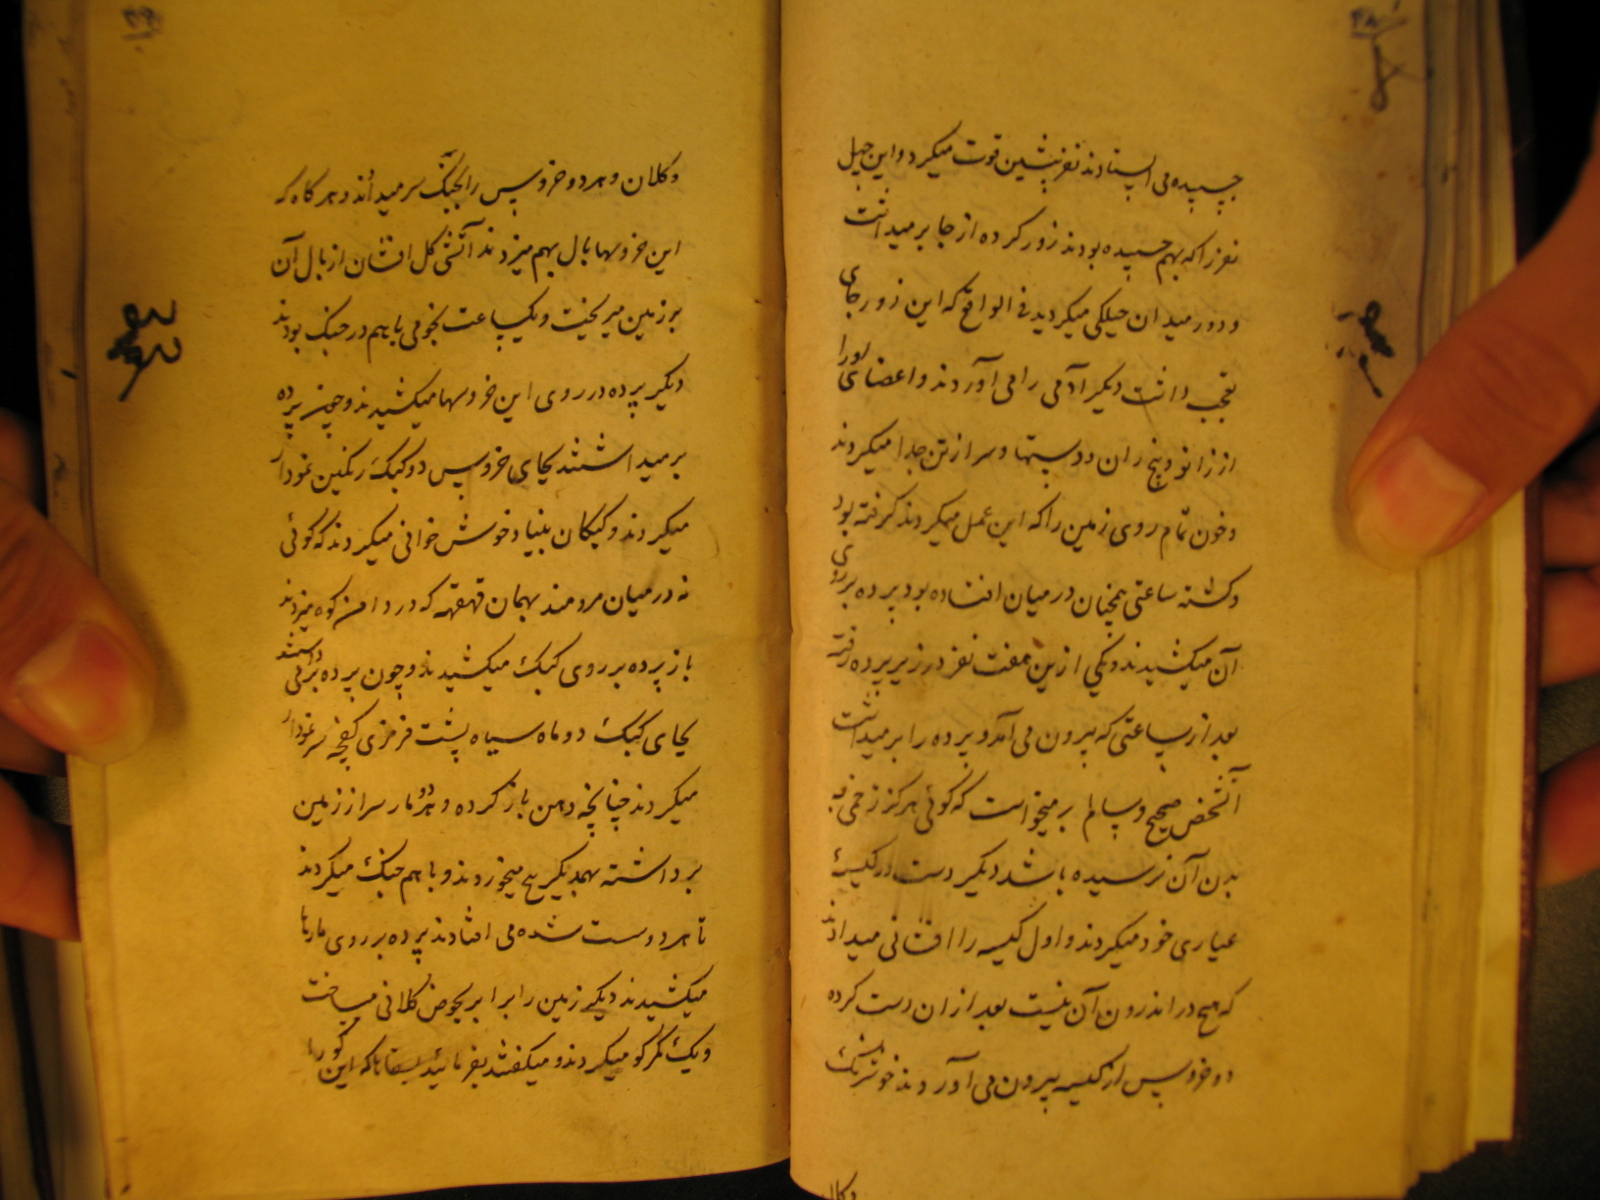 چسپیده می ایستادند نفر پیشین قوت میکرد و این چهل
نفر را که بهم چسپیده بودند زور کرده از جا بر میداشت
و دور میدان میکردید فی الواقع که این زور جای
تعجب داشت دیگر آدمی را می آوردند و اعضای او را
از زانو و پنج ران و دستها و سر از تن جدا میکردند
و خون تمام روی زمین را که این عمل میکردند گرفته بود
و کشته ساعتی همچنان در میان افتاده بود پرده بر روی
آن میکشیدند و یکی ازین هفت نفر در زیر پرده رفته
بعد از ساعتی که بیرون می آمد و پرده را بر میداشت
آنشخص صحیح و سالم بر میخواست که گوئی هرگز زخمی به
بدن آن نرسیده باشد دیگر دست در کیسهٔ
عیاری خود میکردند و اول کیسه را افشانی میدادند
که هیچ در اندرون آن نیست بعد از ان دست کرده
دو خروس از کیسه بیرون می آوردند خوشرنگ
وکلان
وکلان و هر دو خروس را بجنگ سر میدادند و هر گاه که
این خروسها بال بهم میزدند آتش گل افشان از بال آن
بر زمین میریخت و یکساعت نجومی با هم در جنگ بودند
دیگر پرده در روی این خروسها میکشیدند و چون پرده
بر میداشتند بجای خروس دو کبک رنگین نمودار
میکردند و کبکان بنیاد خوش خوانی میکردند که گوئی
نه در میان مردمند بهمان قهقهه که در دامن کوه میزدند
باز پرده بر روی کبک میکشیدند و چون پرده بر می داشتند
بجای کبک دو مار سیاه پشت قرمزی کفچه سر نمودار
میکردند چنانچه دهن باز کرده و هر دو مار سر از زمین
برداشته بهمدیگر پیچ میخوردند و با هم جنگ میکردند
تا هر دو سست شده می افتادند پرده بر روی مارها
میکشیدند دیگر زمین را برابر بحوض کلانی میساخت
و یک میکردند و میگفتند بفرمائید سقا تا که این را